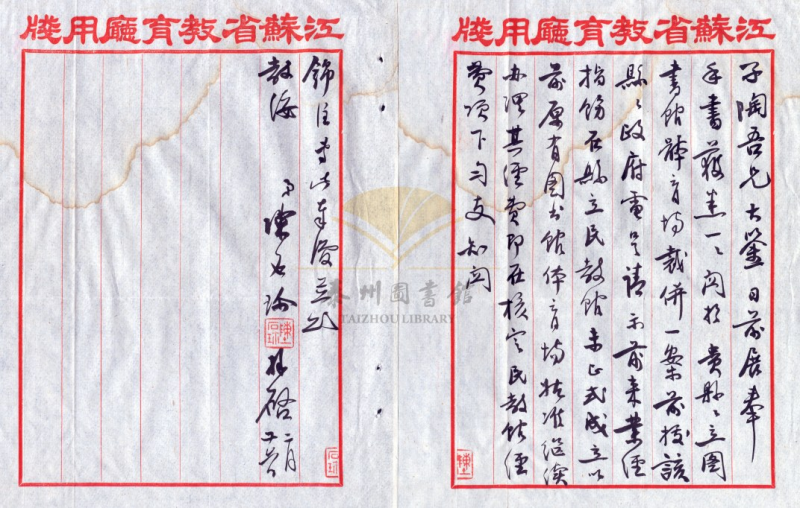 江蘇省教育廳用牋
子陶吾兄大鑒日前展奉
手書獲悉一一關於貴縣〻立圖
書館體育場裁併一案前據該
縣〻政府電呈請示前來業經
指飭在縣立民教館未正式成立以
前原有圖書館体育場姑准繼續
办理其經費即在核定民教館經
費項下勻支知關
江蘇省教育廳用牋
錦注專此奉復並頌
教
弟陳石珍
拜啟 二月
泰州圖書館
TAIZHOU LIBRARY